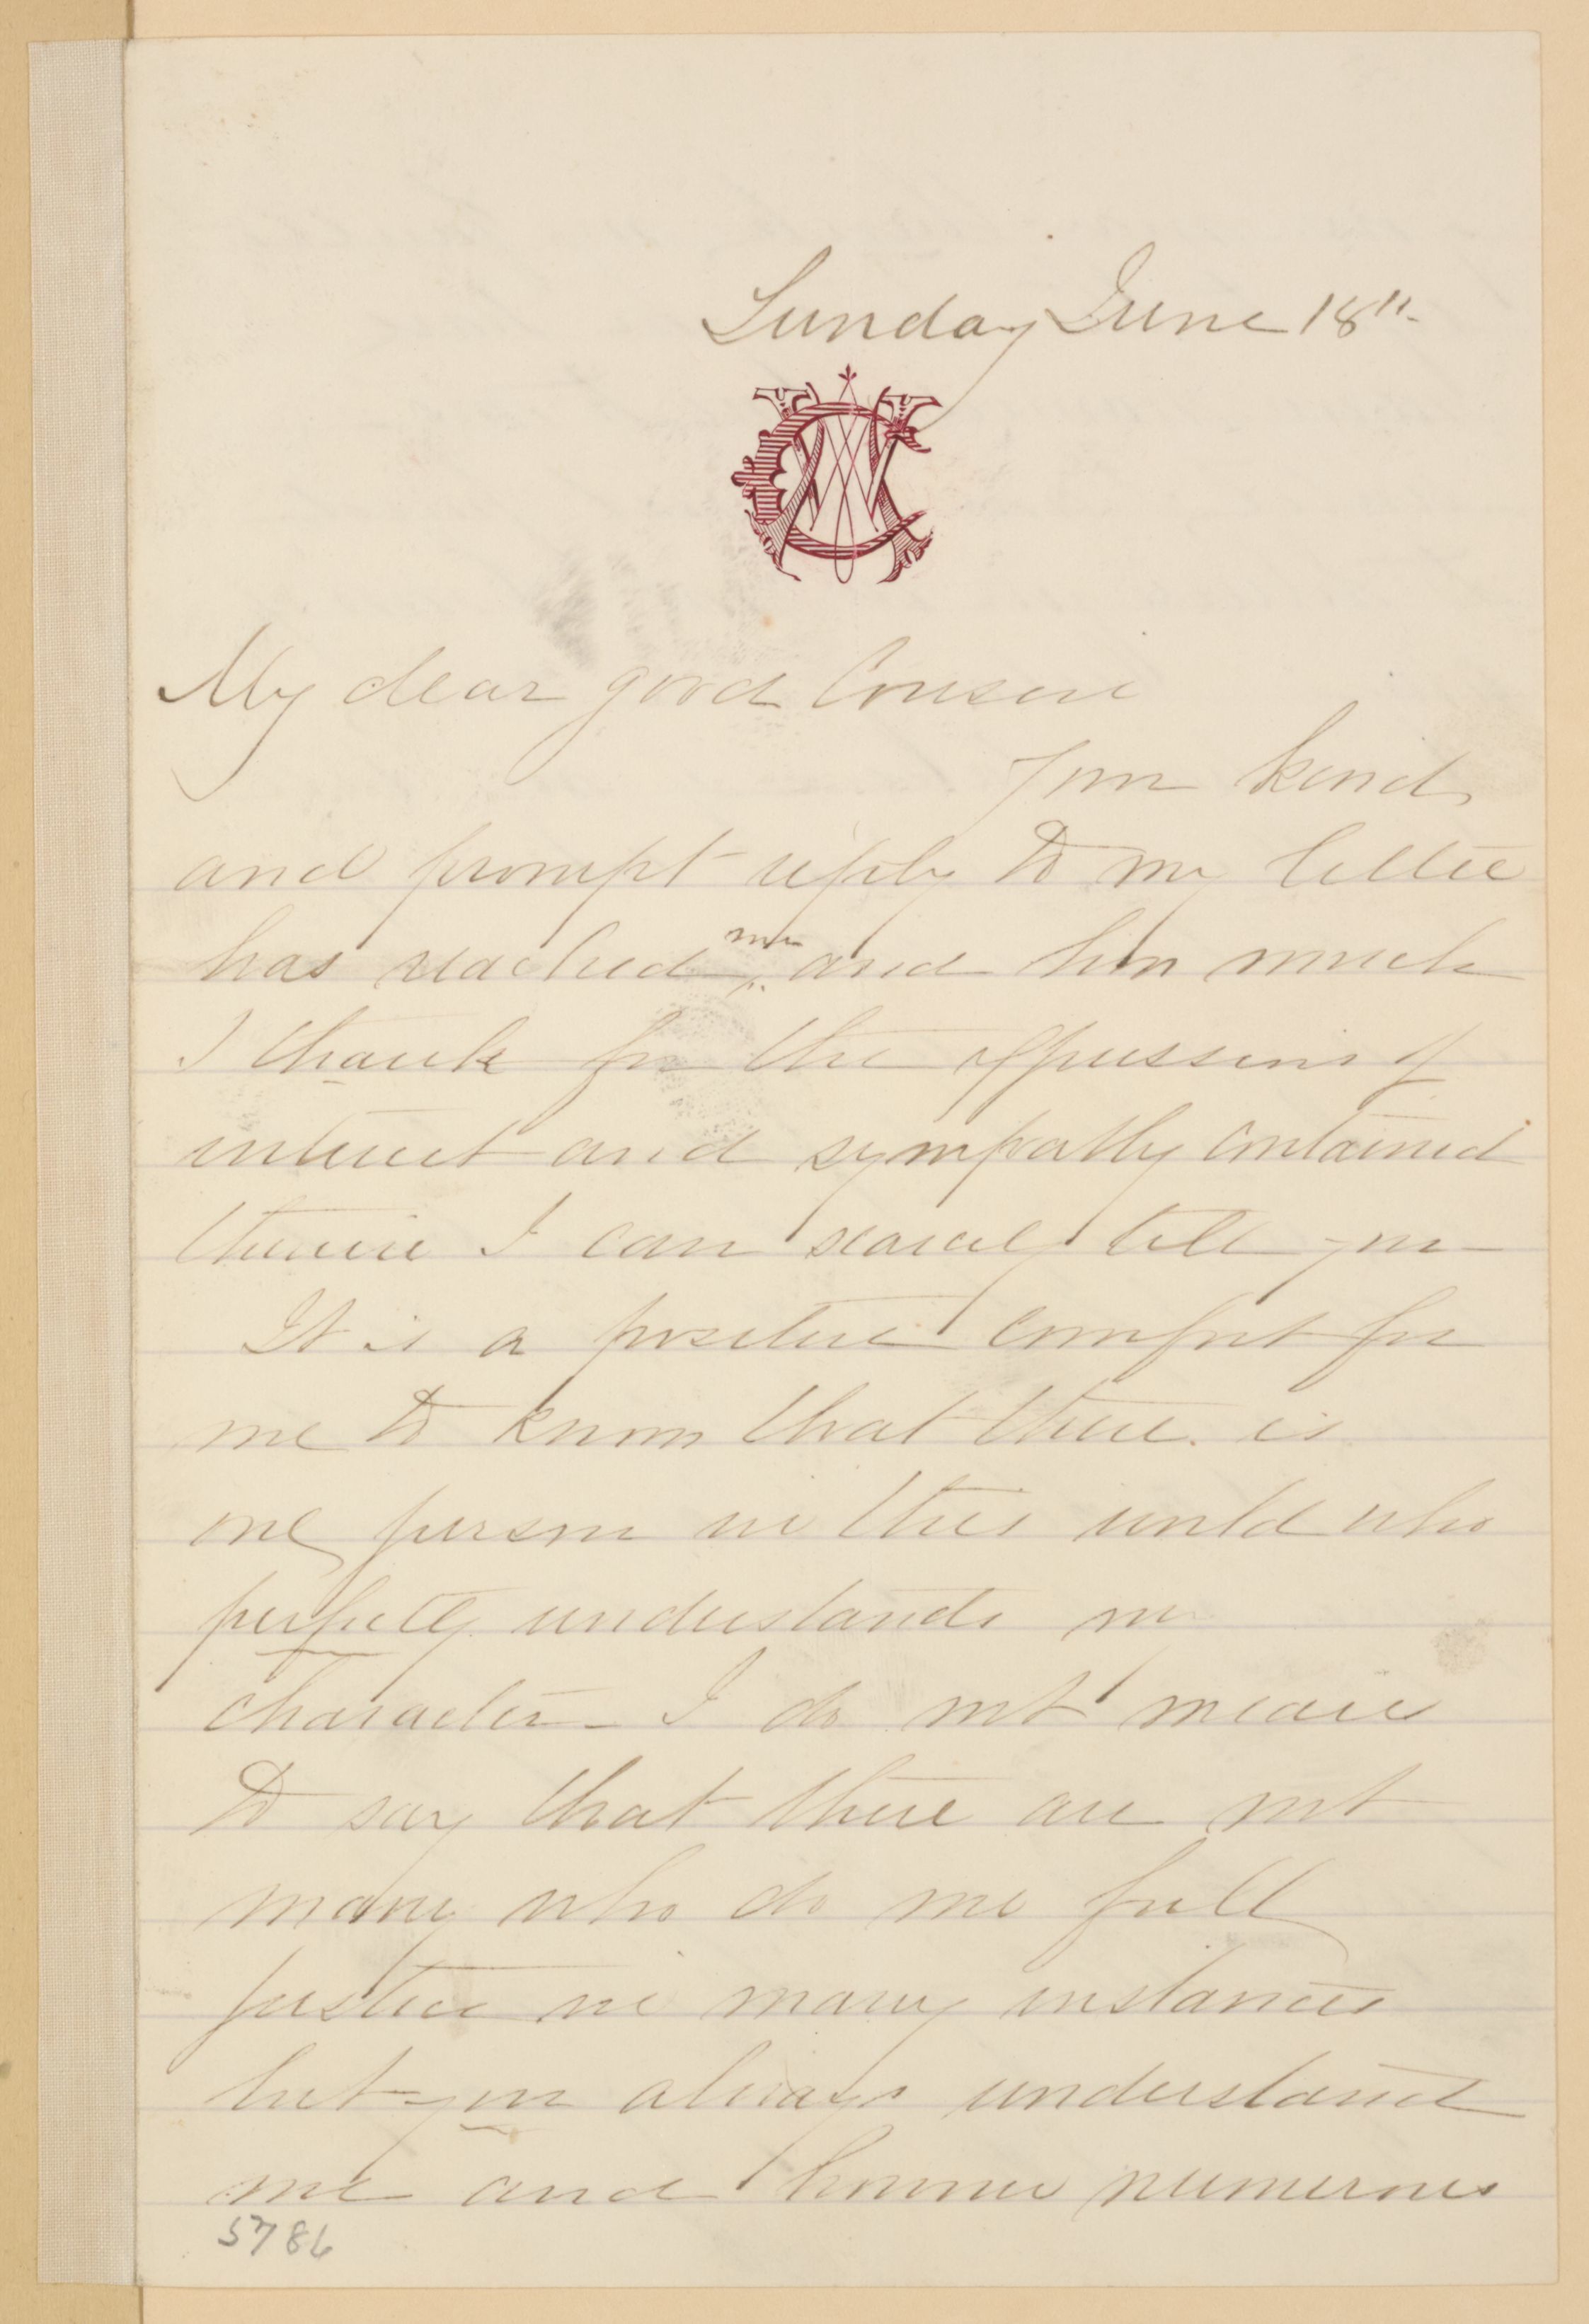 Sunday June 18"
My dear good Cousin
Your kind
and prompt reply to my letter
has reached me and how much
I thank for the expressions of
interest and sympathy contained
therein I can scarcely tell you—
It is a positive comfort for
me to know that there is
one person in this world who
perfectly understands my
character— I do not mean
to say that there are not
many who do me full
justice in many instances
but you always understand
me and however numerous
5786